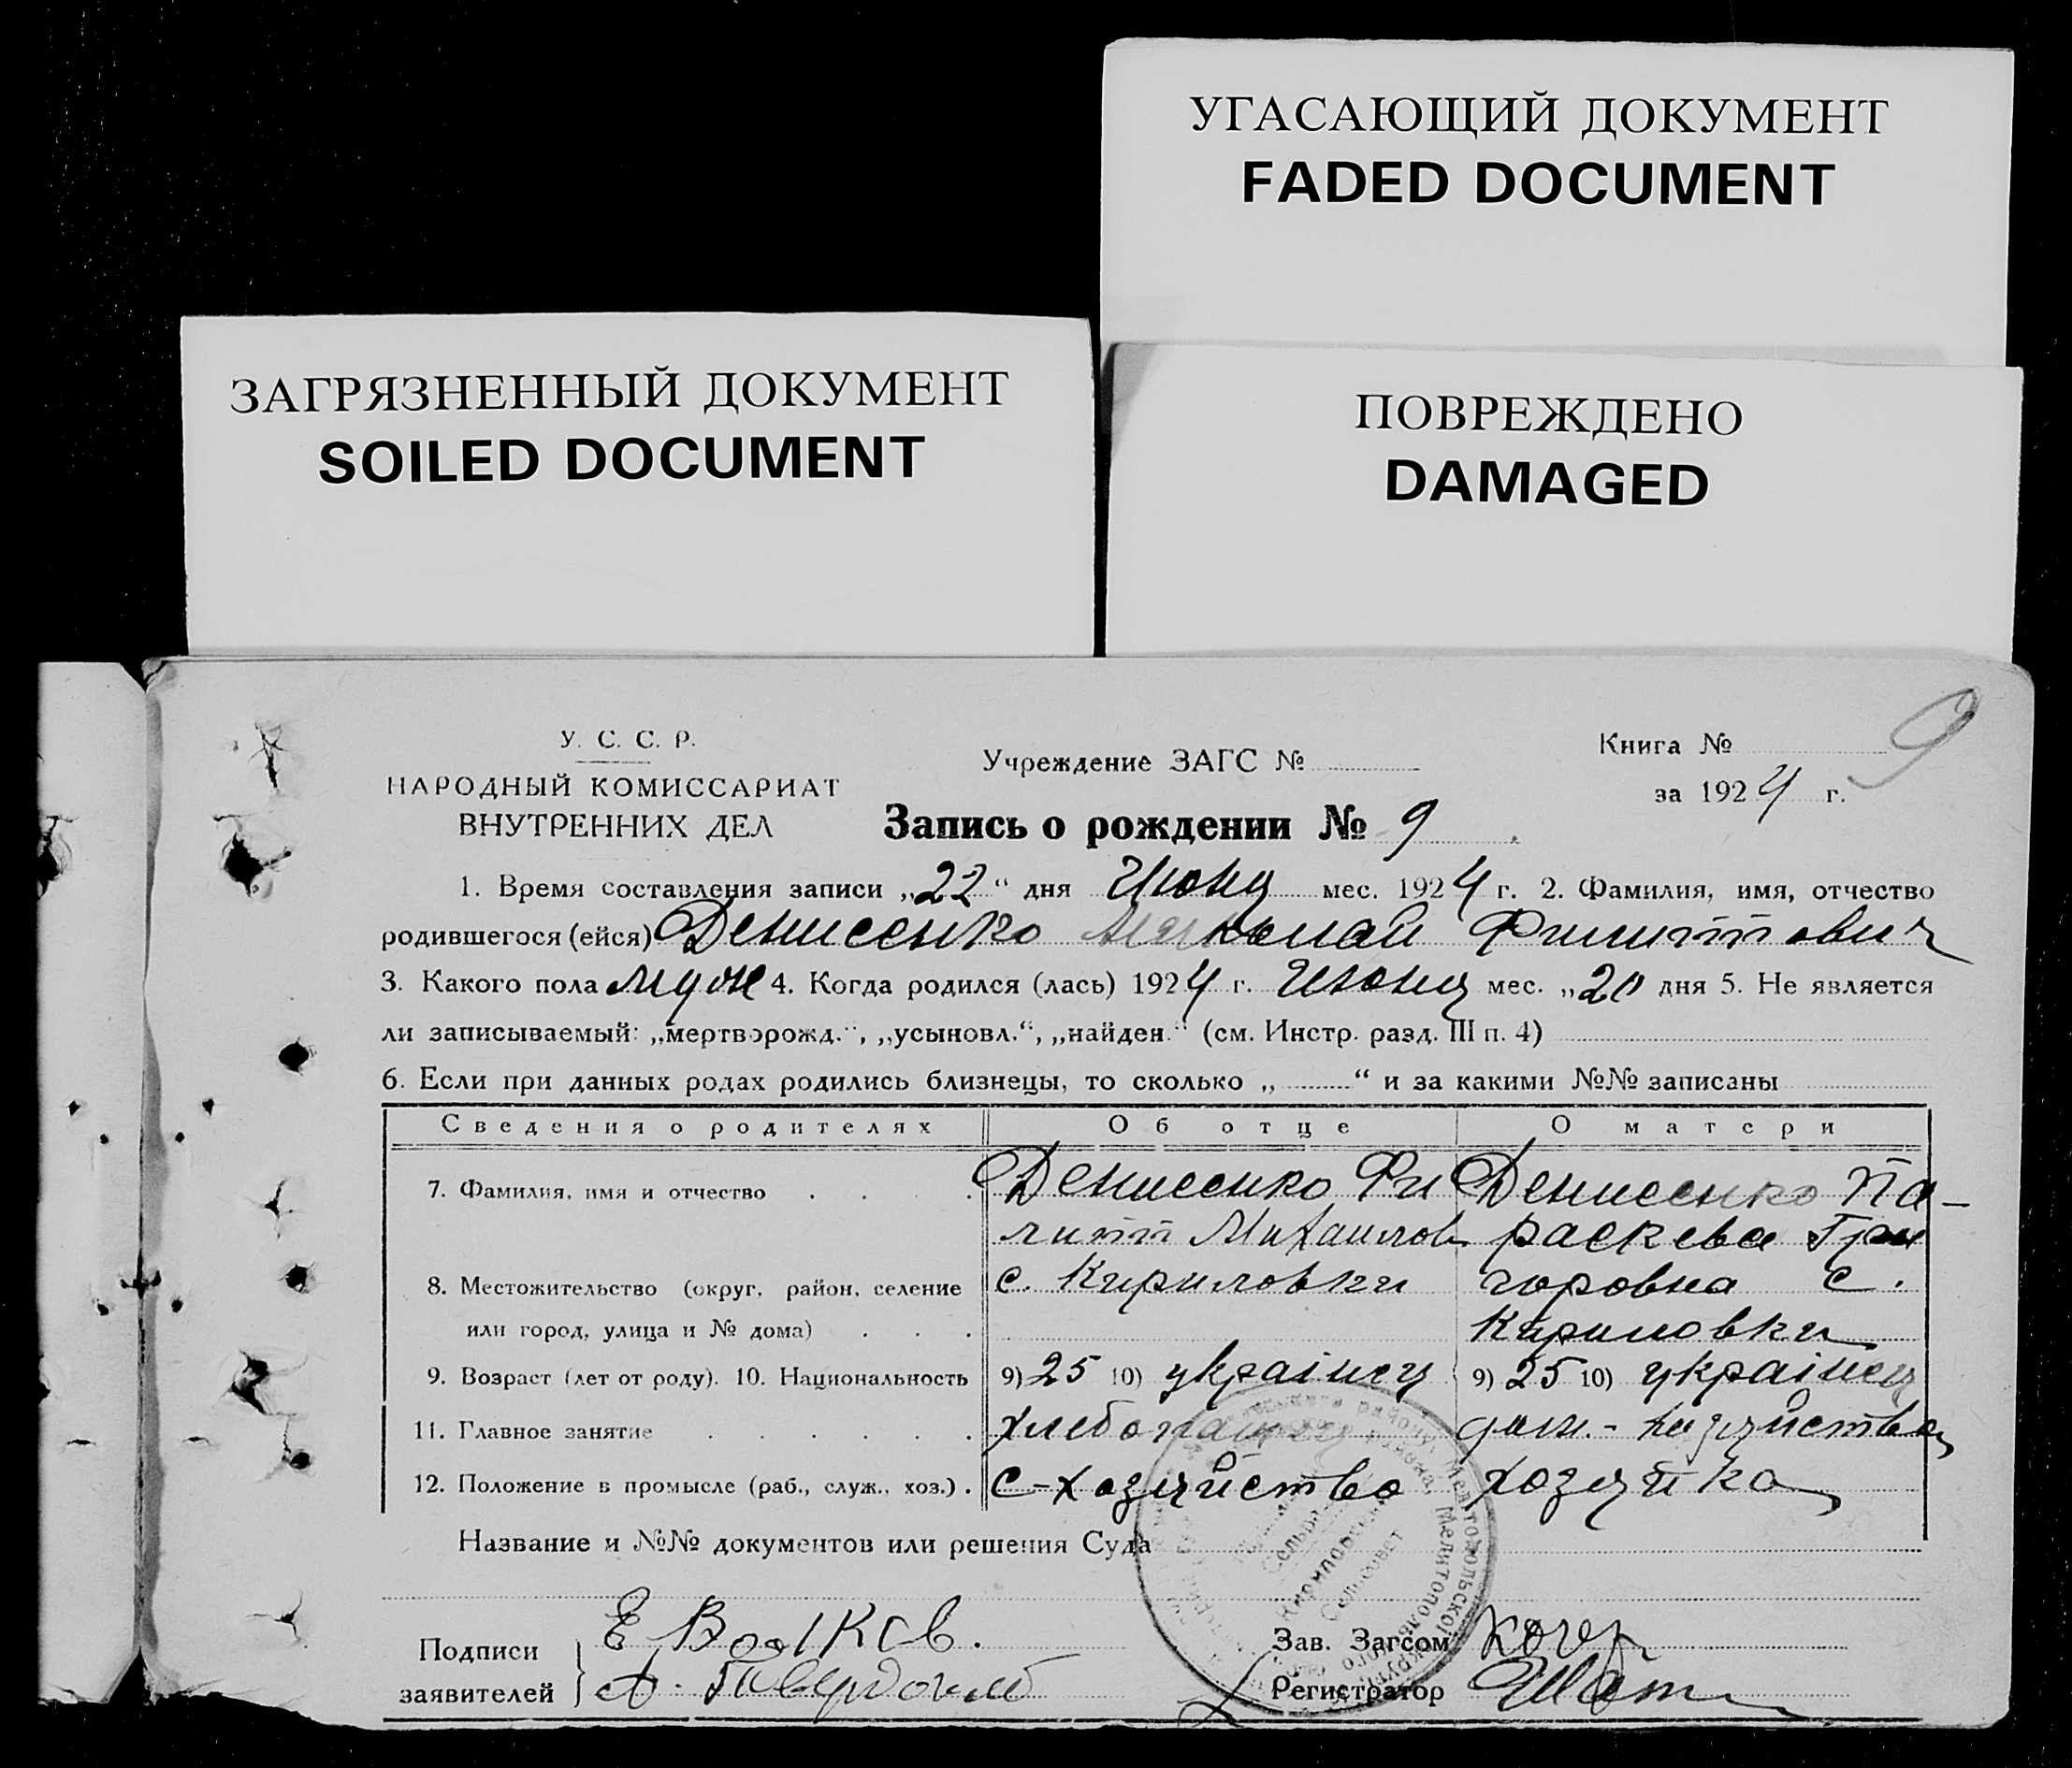 УГАСАЮЩИЙ ДОКУМЕНТ
FADED DOCUMENT
ЗАГРЯЗНЕННЫЙ ДОКУМЕНТ
SOILED DOCUMENT
ПОВРЕЖДЕНО
DAMAGED
9
У. С. С. Р.
НАРОДНЫЙ КОМИССАРИАТ
ВНУТРЕННИХ ДЕЛ
Учреждение ЗАГС №
Книга №
за 1924 г.
Запись о рождении № 9
1. Время составления записи „22“ дня Июня мес. 1924 г. 2. Фамилия, имя, отчество
родившегося (ейся) Денисенко Филиппович
3. Какого пола муж 4. Когда родился (лась) 1924 г. Июня мес. „20 дня 5. Не является
ли записываемый: „мертворожд.“, „усыновл.“, „найден.“ (см. Инстр. разд. III п. 4)
6. Если при данных родах родились близнецы, то сколько „ “ и за какими №№ записаны
Сведения о родителях Об отце О матери
7. Фамилия, имя и отчество Денисенко Фи Денисенко Па-
липп Михаилов раскева Гри
8. Местожительство (округ, район, селение с. Кириловки горовна с.
или город, улица и № дома) Кириловки
9. Возраст (лет от роду). 10. Национальность 9) 25 10) українец 9) 25 10) українец
11. Главное занятие хлебопашец
12. Положение в промысле (раб., служ., хоз.). с-хозяйство хозяйка
Название и №№ документов или решения Суда
Подписи
заявителей
Е Волков.
Зав. Загсом
Регистратор
Кириловский
Сельсовет